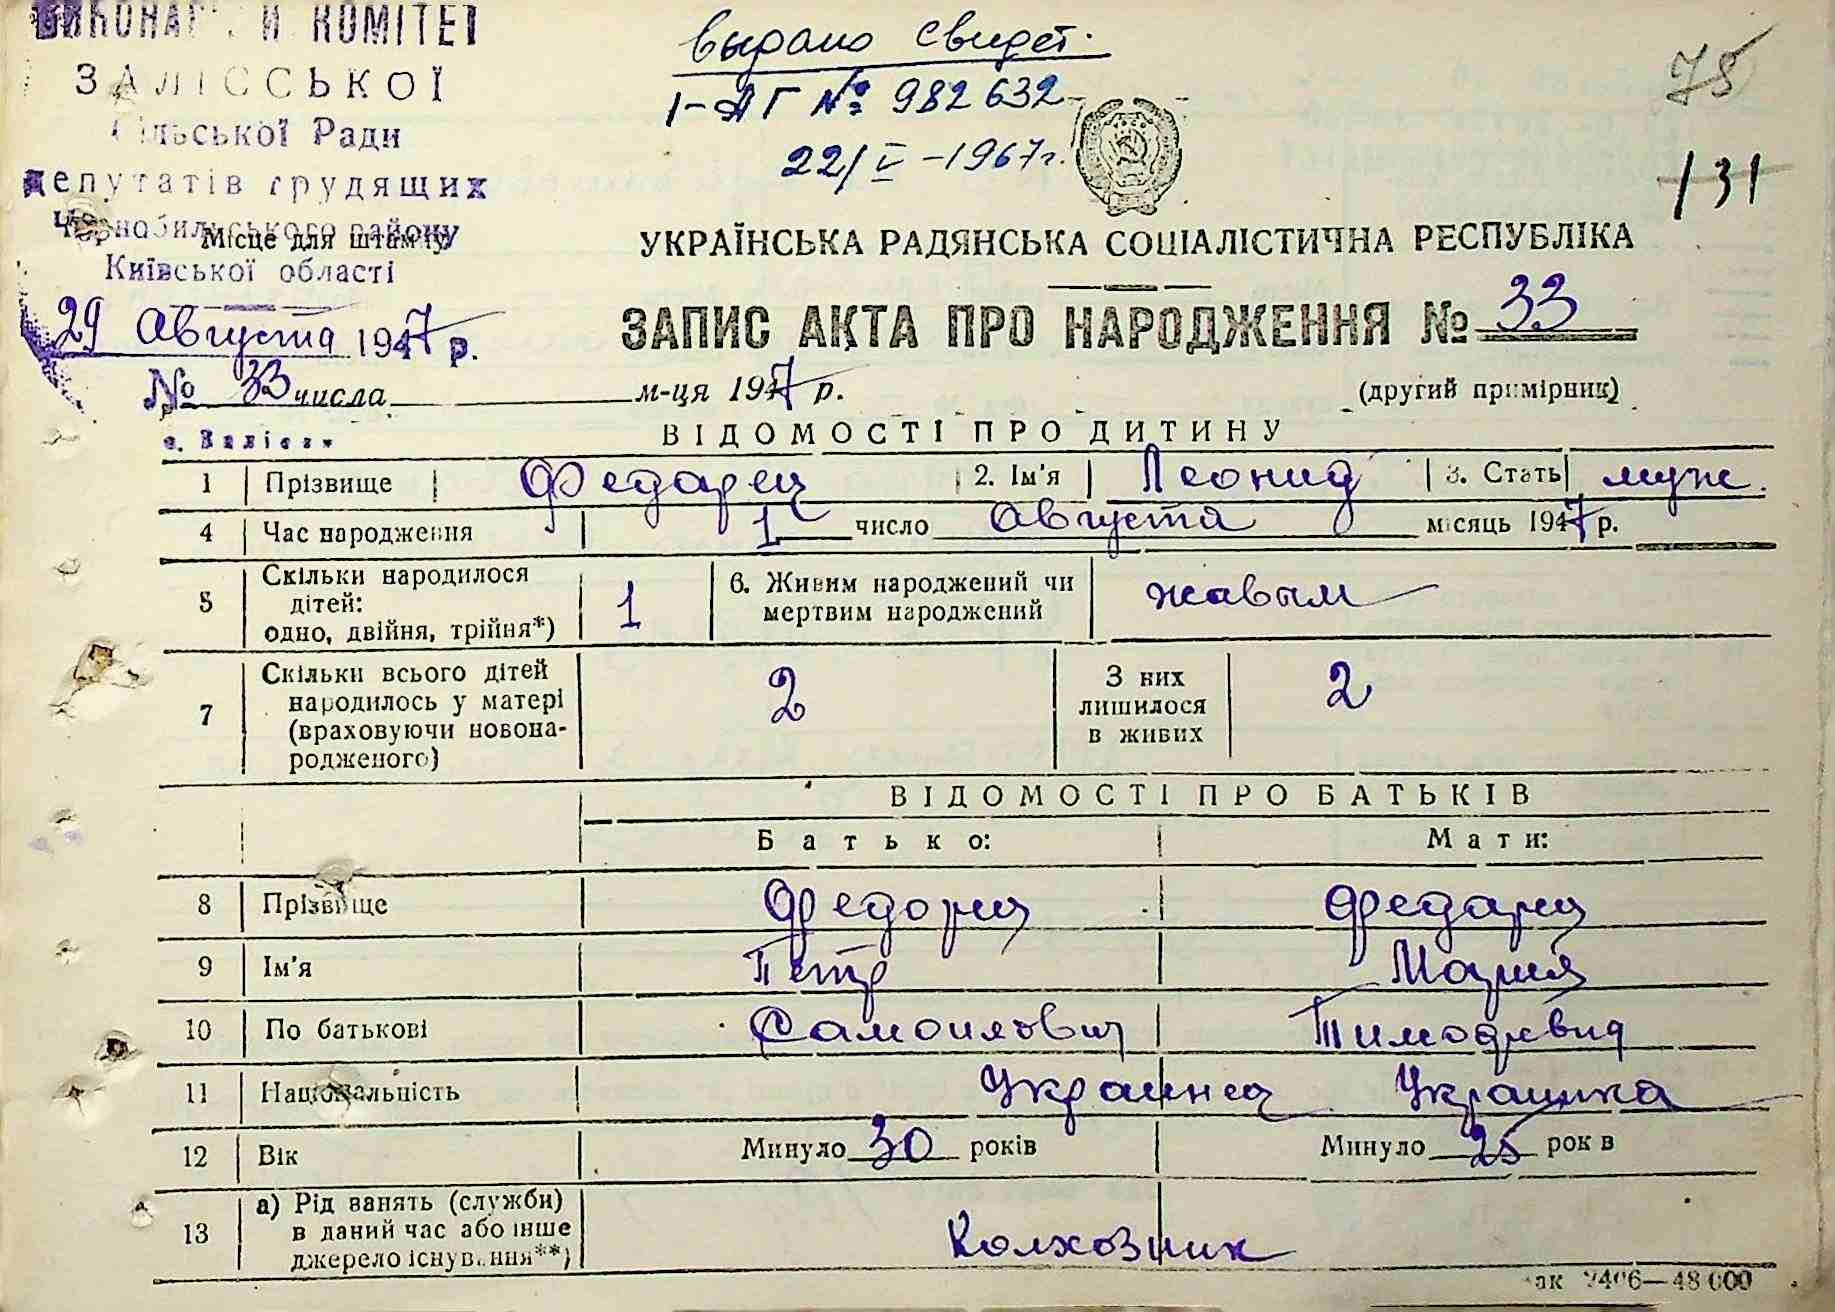 ВИКОНА И КОМІТЕТ
ЗАЛІССЬКОЇ
Сільської Ради
депутатів трудящих
Чорнобильського району
Місце для штампу
Київської області
29 Августа 1947 р.
№ 33
с. Залісся
выдано свидет.
I-АГ № 982632
22/V-1967г.
75
131
УКРАЇНСЬКА РАДЯНСЬКА СОЦІАЛІСТИЧНА РЕСПУБЛІКА
ЗАПИС АКТА ПРО НАРОДЖЕННЯ № 33
числа м-ця 1947 р. (другий примірник)
ВІДОМОСТІ ПРО ДИТИНУ
1 Прізвище Федарец 2. Ім'я Леонид 3. Стать муж.
4 Час народження 1 число Августа місяць 1947 р.
5 Скільки народилося дітей: одно, двійня, трійня*) 1 6. Живим народжений чи мертвим народжений жавым
7 Скільки всього дітей народилось у матері (враховуючи новонародженого) 2 З них лишилося в живих 2
ВІДОМОСТІ ПРО БАТЬКІВ
Батько: Мати:
8 Прізвище Федорец Федарец
9 Ім'я Петр Мария
10 По батькові Самоилович Тимофевна
11 Національність Украинец Украинка
12 Вік Минуло 30 років Минуло 25 рок в
13 а) Рід занять (служби) в даний час або інше джерело існування**) Колхозник
2406—48 000